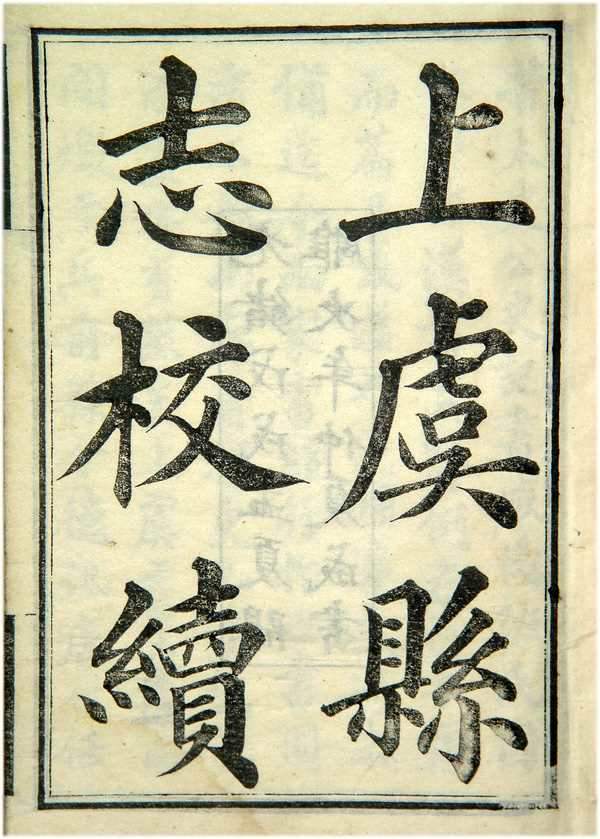 上虞縣
志校續